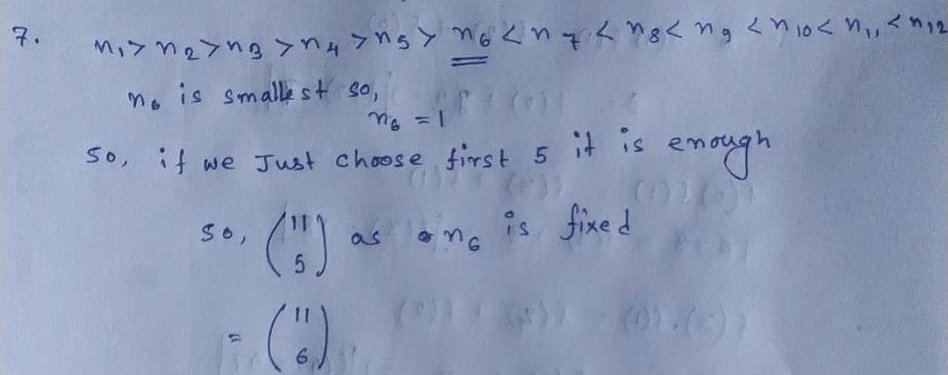 7. n₁ > n₂ > n₃ > n₄ > n₅ > n₆ < n₇ < n₈ < n₉ < n₁₀ < n₁₁ < n₁₂
n₆ is smallest so,
n₆ = 1
so, if we Just choose first 5 it is enough
so, (11 5) as n₆ is fixed
= (11 6)